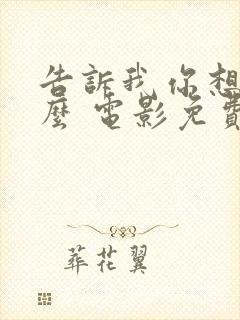 告訴我 你想
麼 電影免費
葬花翼